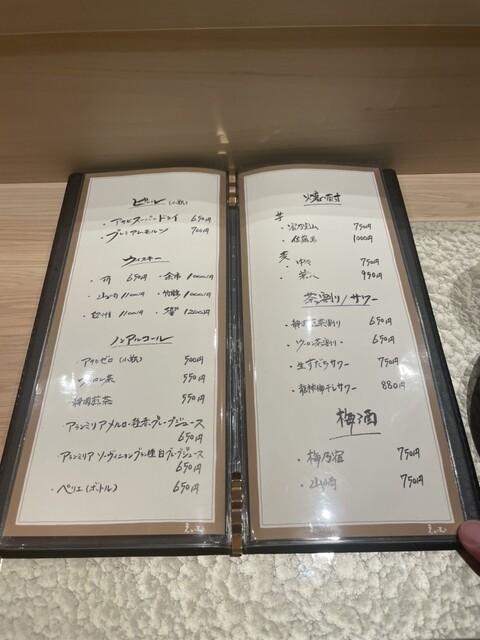 ビール (小瓶)
・アサヒスーパードライ 650円
・プレミアムモルツ 700円
ウィスキー
650円 ・余市 1000円
1100円 ・竹鶴 1100円
1100円 ・響 1200円
ノンアルコール
アサヒゼロ (小瓶) 500円
ウーロン茶 550円
静岡煎茶 550円
・アランミリア メルロー種赤グレープジュース
650円
・アランミリア ソーヴィニヨンブラン種白グレープジュース
650円
・ペリエ (ボトル) 650円
焼酎
芋
・富乃宝山 750円
・佐藤黒 1000円
麦
・中々 750円
950円
茶割り/サワー
・静岡煎茶割り 650円
・ウーロン茶割り 650円
・生すだちサワー 750円
・梅干しサワー 880円
梅酒
・梅乃宿 750円
・山崎 750円